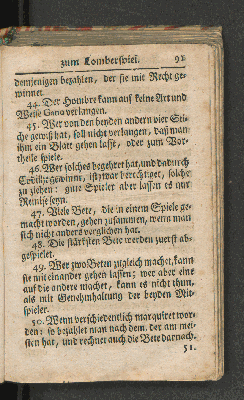 zum Lomberspiel. 91
demjenigen bezahlen, der sie mit Recht ge-
winnet.
44. Der Hombre kann auf keine Art und
Weise Gano verlangen.
45. Wer von den beyden andern vier Sti-
che gewiß hat, soll nicht verlangen, daß man
ihm ein Blatt gehen lasse, oder zum Vor-
theile spiele.
46. Wer solches begehret hat, und dadurch
Codille gewinnt, ist zwar berechtiget, solche
zu ziehen: gute Spieler aber lassen es zur
Remise seyn.
47. Viele Bete, die in einem Spiele ge-
macht worden, gehen zusammen, wenn man
sich nicht anders verglichen hat.
48. Die stärksten Bete werden zuerst ab-
gespielet.
49. Wer zwo Beten zugleich machet, kann
sie mit einander gehen lassen; wer aber eine
auf die andere machet, kann es nicht thun,
als mit Genehmhaltung der beyden Mit-
spieler.
50. Wenn verschiedentlich marquiret wor-
den: so bezahlet man nach dem, der am mei-
sten hat, und rechnet auch die Bete darnach.
51.